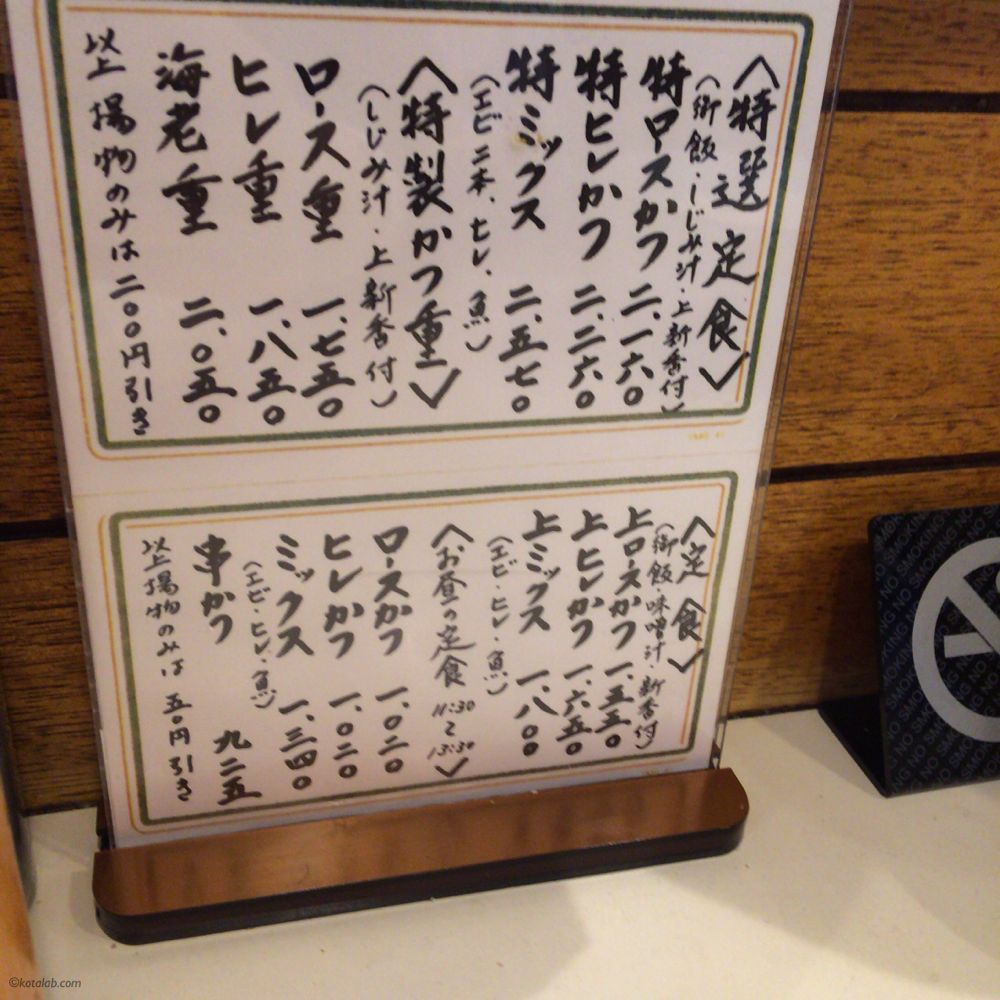 〈特選定食〉
(御飯・しじみ汁・上新香付)
特ロースかつ 二、一六〇
特ヒレかつ 二、二六〇
特ミックス 二、五七〇
(エビ二本、ヒレ、魚)
〈特製かつ重〉
(しじみ汁・上新香付)
ロース重 一、七五〇
ヒレ重 一、八五〇
海老重 二、〇五〇
以上揚物のみは二〇〇円引き
〈定食〉
(御飯・味噌汁・新香付)
上ロースかつ 一、五五〇
上ヒレかつ 一、六五〇
上ミックス 一、八〇〇
(エビ・ヒレ、魚)
〈お昼の定食 11:30〜13:30〉
ロースかつ 一、〇二〇
ヒレかつ 一、〇二〇
ミックス 一、三四〇
(エビ・ヒレ、魚)
串かつ 九二五
以上揚物のみは 五〇円引き
NO SMOKING NO SMOKING
©kotalab.com